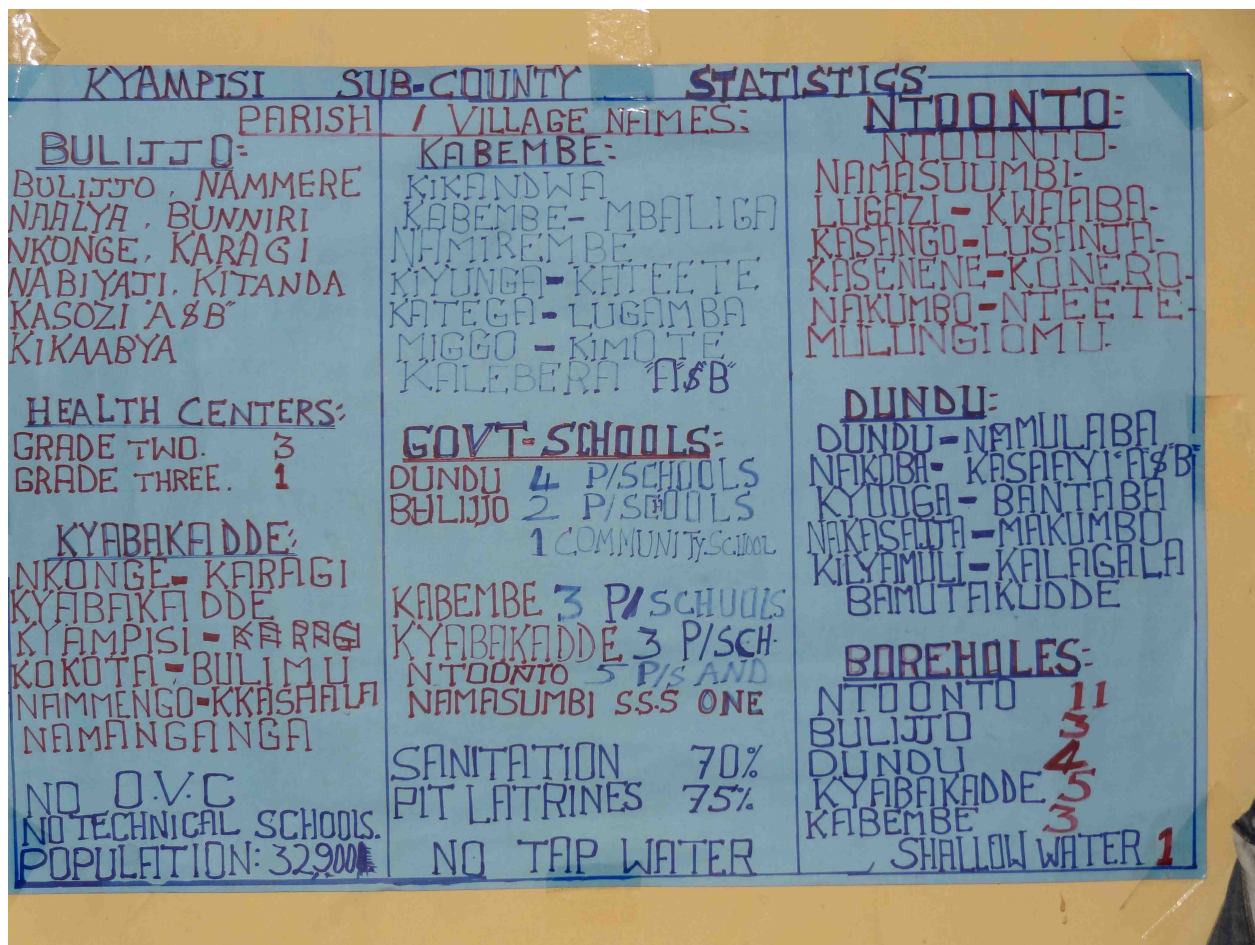 KYAMPISI SUB-COUNTY STATISTICS
PARISH / VILLAGE NAMES:
BULIJJO:
BULIJJO, NAMMERE
NAALYA, BUNNIRI
NKONGE, KARAGI
NABIYAJI, KITANDA
KASOZI "A$B"
KIKAABYA
HEALTH CENTERS:
GRADE TWO. 3
GRADE THREE. 1
KYABAKADDE:
NKONGE- KARAGI
KYABAKADDE
KYAMPISI -
KOKOTA-BULIMU
NAMMENGO-KKASAALA
NAMANGANGA
NO O.V.C
NO TECHNICAL SCHOOLS.
POPULATION: 32,900
KABEMBE:
KIKANDWA
KABEMBE- MBALIGA
NAMIREMBE
KIYUNGA-KATEETE
KATEGA-LUGAMBA
MIGGO - KIMOTE
KALEBERA "A$B"
GOVT-SCHOOLS:
DUNDU 4 P/SCHOOLS
BULIJJO 2 P/SCHOOLS
1 COMMUNITY SCHOOL
KABEMBE 3 P/SCHOOLS
KYABAKADDE 3 P/SCH.
NTOONTO 5 P/S AND
NAMASUMBI S.S.S ONE
SANITATION 70%
PIT LATRINES 75%
NO TAP WATER
NTOONTO:
NTOONTO-
NAMASUUMBI-
LUGAZI - KWAABA-
KASANGO-LUSANJA-
KASENENE-KONERO-
NAKUMBO-NTEETE-
MULUNGIOMU.
DUNDU:
DUNDU-NAMULABA
NAKOBA- KASAAYI "A$B"
KYOOGA - BANTABA
NAKASAJJA-MAKUMBO
KILYAMULI-KALAGALA
BAMUTAKUDDE
BOREHOLES:
NTOONTO 11
BULIJJO 3
DUNDU 4
KYABAKADDE 5
KABEMBE 3
SHALLOW WATER 1